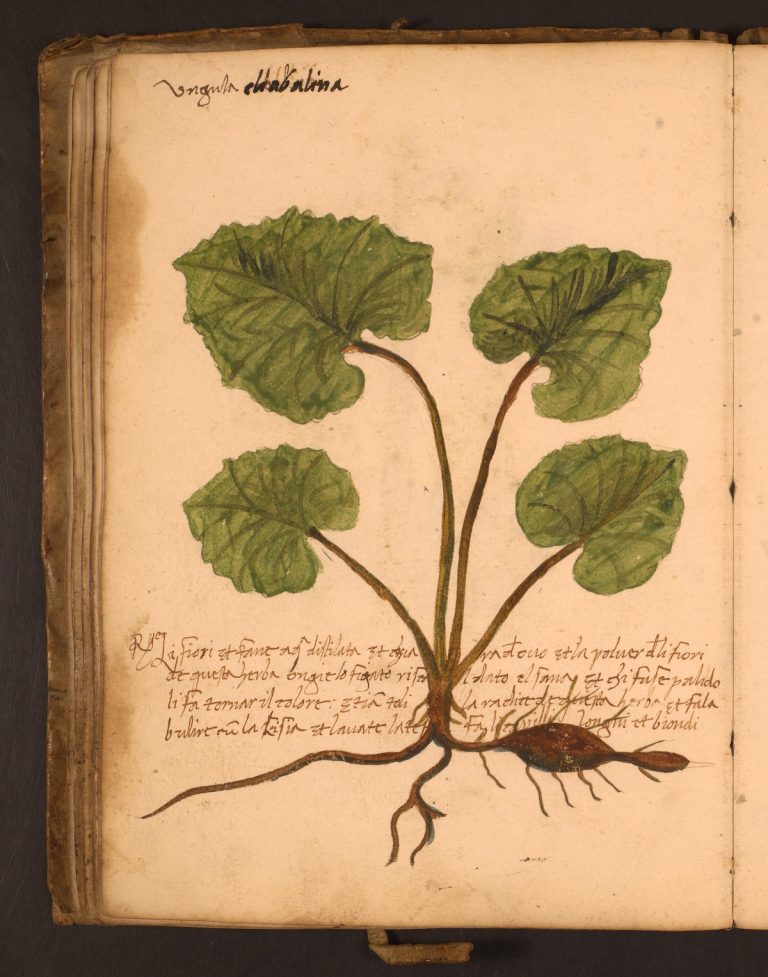 Vngula chabalina
Li fiori et fane aq distilata et chia ra d ouo et la poluer d li fiori
de questa herba ongie lo figato rischa ldato el sana et chi fuse palido
li fa tornar il colore: et iã toli la radice de questa herba et fala
bulire cũ la lisia et lauate la testa fa li capilli longhi et biondi